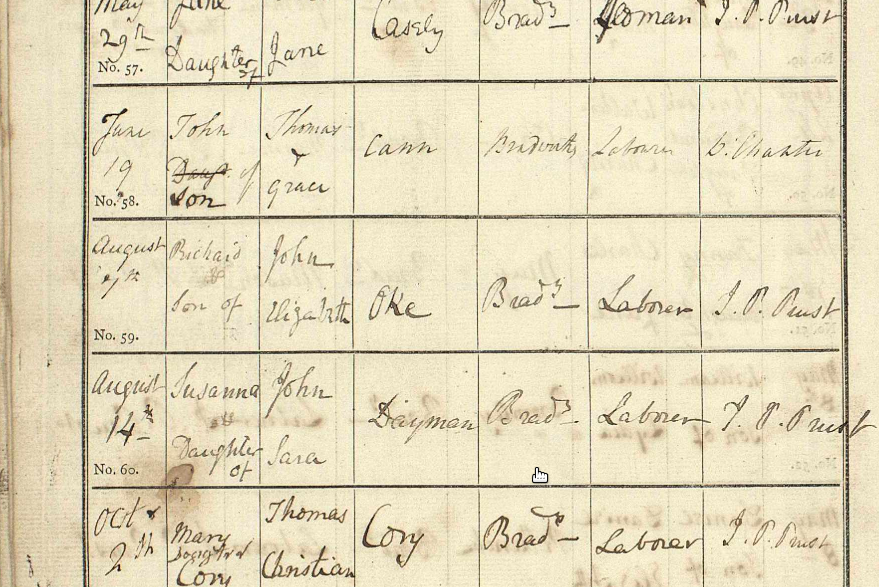 May Jane Casely Brads Yeoman J. P. Prust
29th Daughter of Jane
No. 57.
June John Thomas Cann Bradworthy Laborer
19 Daugr. of &
No. 58. Son Grace
August Richard John
7th Son of Elizabeth Oke Brads Laborer J. P. Prust
No. 59.
August Susanna John Dayman Brads Laborer J. P. Prust
14th Daughter of Sara
No. 60.
Oct Mary Thomas Cory Brads Laborer J. P. Prust
2th Daughter of Christian
Cory